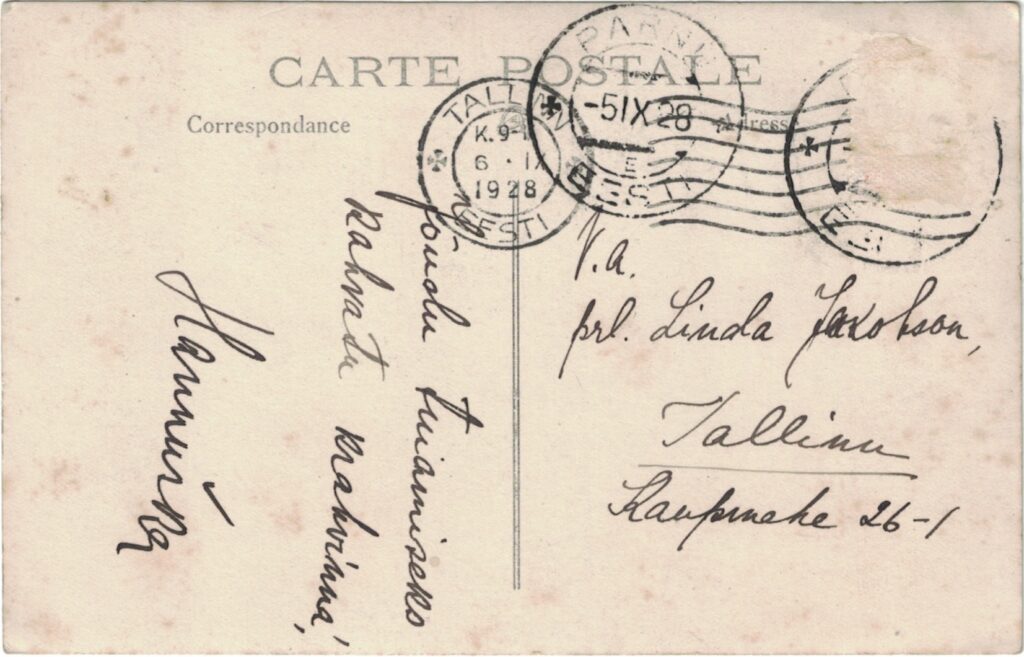 CARTE POSTALE
Correspondance
TALLINN
K. 9-1
6 · IX
1928
EESTI
PÄRNU
-5IX28
E
EESTI
jõudu tuiamiseks
kahvatu krahvinna!
V.a.
prl. Linda Jakobson,
Tallinn
Kaupmehe 26-1